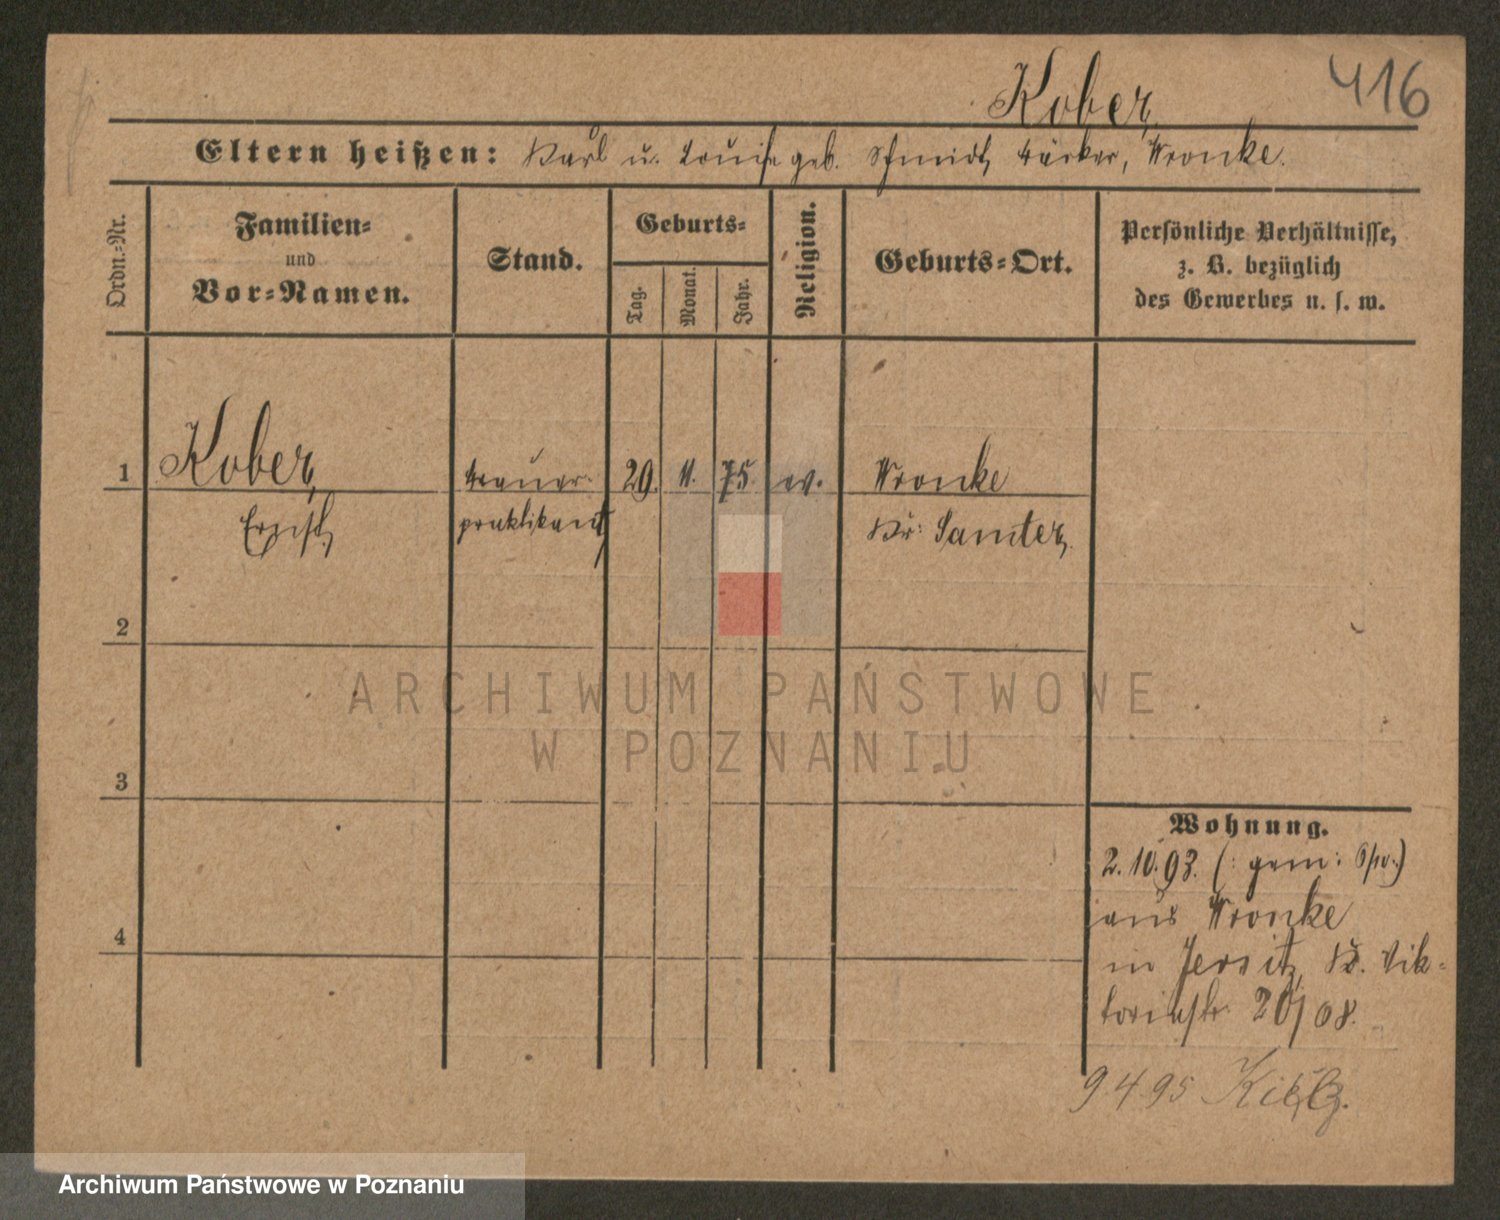 Kober, 416
Eltern heißen: Karl u. Louise geb. Schmidt, Bäcker, Wronke.
Ordn.-Nr.
Familien- und Vor-Namen.
Stand.
Geburts-
Tag. Monat. Jahr.
Religion.
Geburts-Ort.
Persönliche Verhältnisse,
z. B. bezüglich
des Gewerbes u. s. w.
1 Kober, 29. 11. 75. ev. Wronke
Ernst, praktikant Kr: Samter,
2
3
4
Wohnung.
2.10.93. (: gem:
aus Wronke
in Jersitz, Vik-
toriastr. 20/
9 4 95
ARCHIWUM PAŃSTWOWE
W POZNANIU
Archiwum Państwowe w Poznaniu